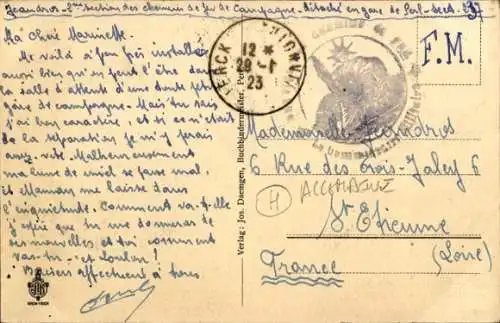 Jeandros - 2me section des chemins de fer de Campagne - Détaché en gare de - Sect.
Ma Chère Mauricette
Me voilà à peu près installé
aussi bien qu'on peut l'être dans
la salle d'attente d'une toute petite
gare de campagne. Mais tu sais
j'ai bon caractère, et si ce n'était
de la séparation je m'y ferais
assez vite. Malheureusement
ma lune de miel se passe mal,
et Maman me laisse dans
l'inquiétude. Comment va-t-elle
j'espère que tu me donneras de
ses nouvelles et toi comment
vas-tu - et Loulou!
Baisers affectueux à toutes
12 *
29 - 1
23
CHEMINS DE FER
Le Commissaire Militaire
F.M.
Mademoiselle Jeandros
6 Rue des Trois-Joley 6
H ALLEMAGNE
St Etienne
(Loire)
France
Verlag: Jos. Daemgen, Buchbindermeister,